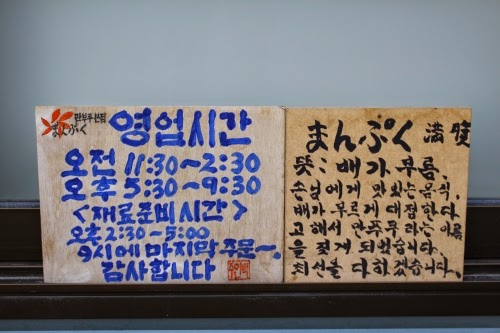 만푸쿠본점
まんぷく
영업시간
오전 11:30~2:30
오후 5:30~9:30
<재료준비시간>
오후 2:30~5:00
9시에 마지막 주문~.
감사합니다
まんぷく 満腹
뜻: 배가 부름.
손님에게 맛있는 음식
배가 부르게 대접한다
고 해서 만푸쿠라는 이름
을 짖게 되었습니다.
최선을 다하겠습니다.